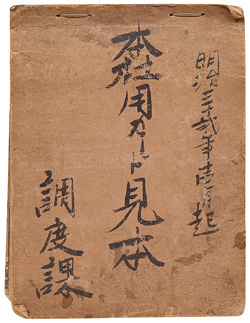 明治三十弐年壱月起
本社用カード見本
調度課